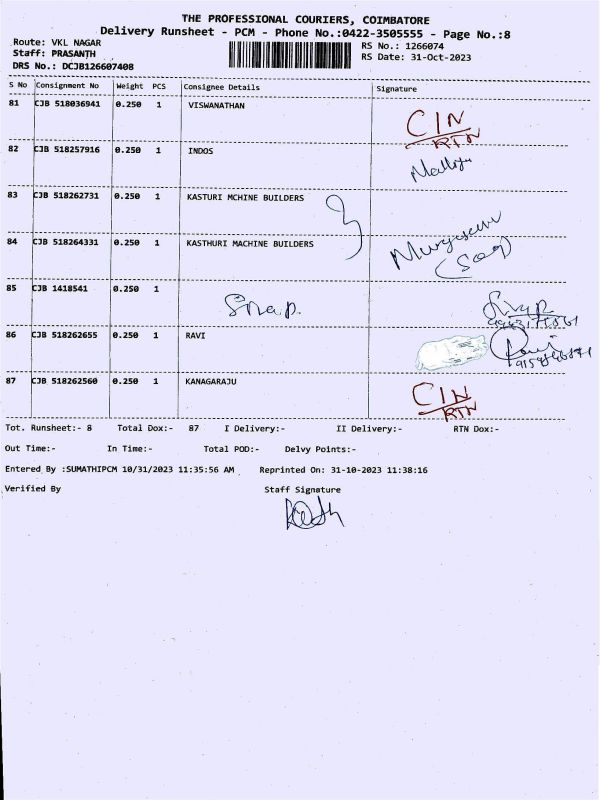 THE PROFESSIONAL COURIERS, COIMBATORE
Delivery Runsheet - PCM - Phone No.:0422-3505555 - Page No.:8
Route: VKL NAGAR RS No.: 1266074
Staff: PRASANTH RS Date: 31-Oct-2023
DRS No.: DCJB126607408
S No Consignment No Weight PCS Consignee Details Signature
81 CJB 518036941 0.250 1 VISWANATHAN CIN
RTN
82 CJB 518257916 0.250 1 INDOS
83 CJB 518262731 0.250 1 KASTURI MCHINE BUILDERS
84 CJB 518264331 0.250 1 KASTHURI MACHINE BUILDERS
85 CJB 1418541 0.250 1
86 CJB 518262655 0.250 1 RAVI Ravi
87 CJB 518262560 0.250 1 KANAGARAJU CIN
RTN
Tot. Runsheet:- 8 Total Dox:- 87 I Delivery:- II Delivery:- RTN Dox:-
Out Time:- In Time:- Total POD:- Delvy Points:-
Entered By :SUMATHIPCM 10/31/2023 11:35:56 AM Reprinted On: 31-10-2023 11:38:16
Verified By Staff Signature